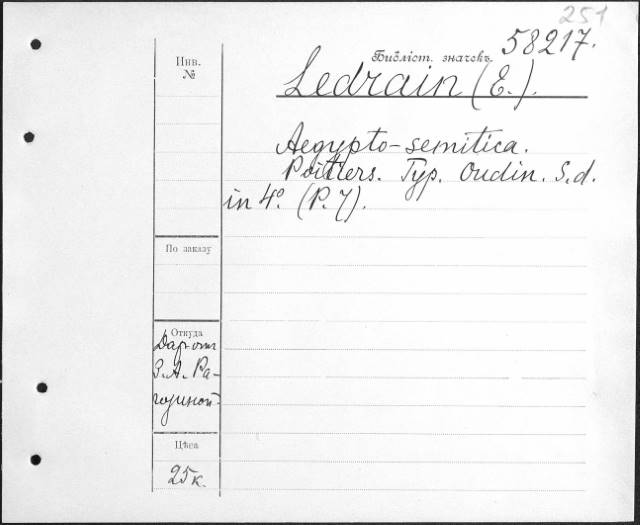 251
58217.
Инв.
№
Библіот. значекъ
Ledrain (E.).
Aegypto-semitica.
Poitiers. Typ. Oudin. S.d.
in 4º. (P. 7).
По заказу
Откуда
Дар от
З. А. Ра-
гозиной
Цѣна
25 к.